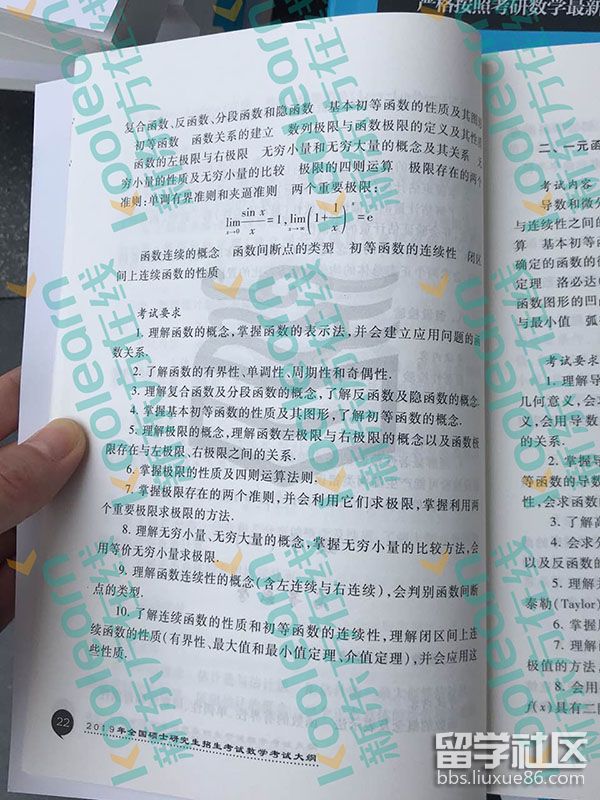 严格按照考研数学最新
复合函数、反函数、分段函数和隐函数 基本初等函数的性质及其图形
初等函数 函数关系的建立 数列极限与函数极限的定义及其性质
函数的左极限与右极限 无穷小量和无穷大量的概念及其关系 无
穷小量的性质及无穷小量的比较 极限的四则运算 极限存在的两个
准则:单调有界准则和夹逼准则 两个重要极限:
lim x→0 sin x / x = 1, lim x→∞ (1+1/x)^x = e
函数连续的概念 函数间断点的类型 初等函数的连续性 闭区
间上连续函数的性质
考试要求
1. 理解函数的概念,掌握函数的表示法,并会建立应用问题的函
数关系.
2. 了解函数的有界性、单调性、周期性和奇偶性.
3. 理解复合函数及分段函数的概念,了解反函数及隐函数的概念.
4. 掌握基本初等函数的性质及其图形,了解初等函数的概念.
5. 理解极限的概念,理解函数左极限与右极限的概念以及函数极
限存在与左极限、右极限之间的关系.
6. 掌握极限的性质及四则运算法则.
7. 掌握极限存在的两个准则,并会利用它们求极限,掌握利用两
个重要极限求极限的方法.
8. 理解无穷小量、无穷大量的概念,掌握无穷小量的比较方法,会
用等价无穷小量求极限.
9. 理解函数连续性的概念(含左连续与右连续),会判别函数间断
点的类型.
10. 了解连续函数的性质和初等函数的连续性,理解闭区间上连
续函数的性质(有界性、最大值和最小值定理、介值定理),并会应用这
些性质.
22
2019年全国硕士研究生招生考试数学考试大纲
二、一元函
考试内容
导数和微分
与连续性之间的
算 基本初等函
确定的函数的微
定理 洛必达(
函数图形的凹凸
与最小值 弧
考试要求
1. 理解导
几何意义,会求
义,会用导数
的关系.
2. 掌握导
等函数的导数
性,会求函数的
3. 了解高
4. 会求分
以及反函数的
5. 理解并
泰勒(Taylor)
6. 掌握用
7. 理解函
极值的方法,
8. 会用
f(x)具有二阶
koolearn 新东方在线
留学社区
bbs.liuxue86.com